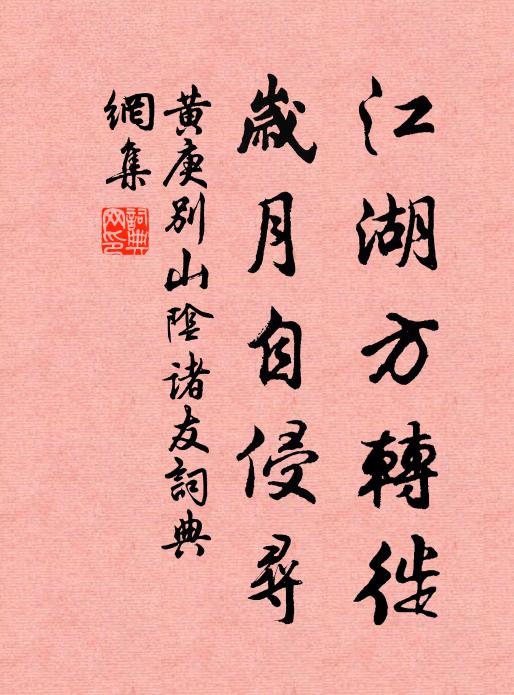 江湖方轉徙
歲月自侵尋
黃庚別山陰諸友詞典
網集
詞典網印